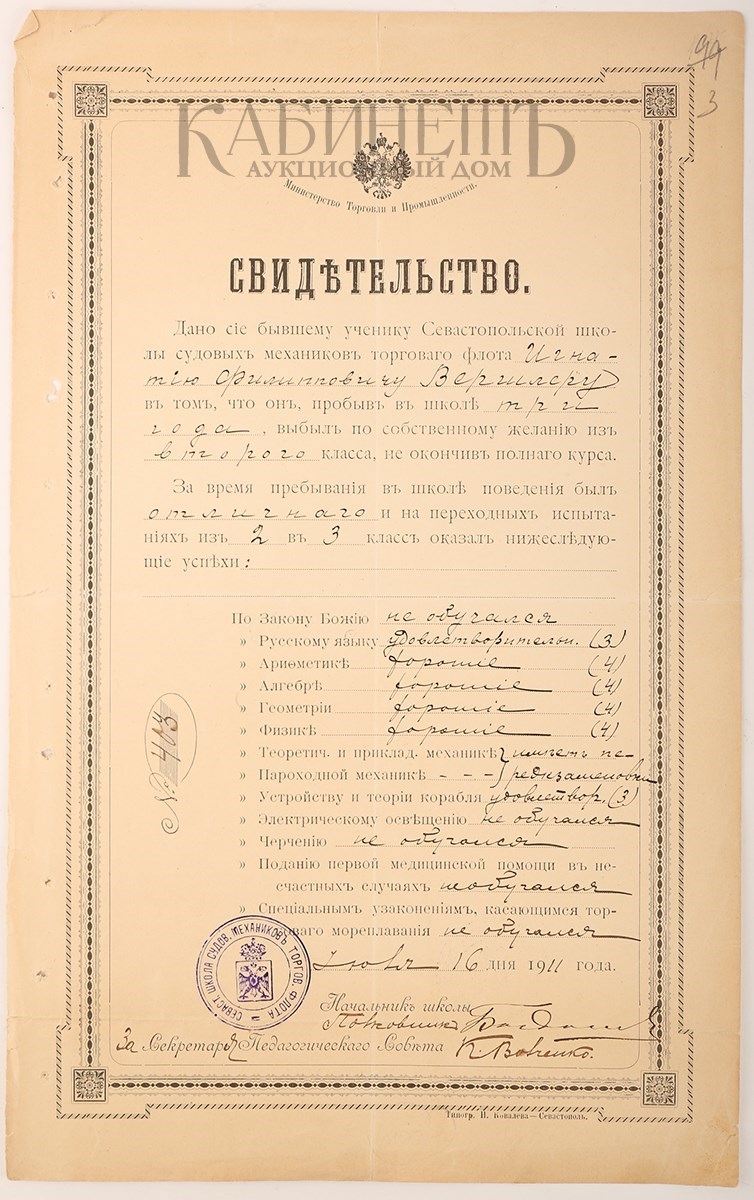 99
3
КАБИНЕТЪ
АУКЦИОННЫЙ ДОМ
Министерство Торговли и Промышленности.
СВИДѢТЕЛЬСТВО.
Дано сіе бывшему ученику Севастопольской шко-
лы судовыхъ механиковъ торговаго флота Игна-
тію Филипповичу Вершлеру
въ томъ, что онъ, пробывъ въ школѣ три
года, выбылъ по собственному желанію изъ
второго класса, не окончивъ полнаго курса.
За время пребыванія въ школѣ поведенія былъ
отличнаго и на переходныхъ испыта-
ніяхъ изъ 2 въ 3 классъ оказалъ нижеслѣдую-
щіе успѣхи:
По Закону Божію не обучался
» Русскому языку удовлетворительн. (3)
» Ариѳметикѣ хорошіе (4)
» Алгебрѣ хорошіе (4)
» Геометріи хорошіе (4)
» Физикѣ хорошіе (4)
» Теоретич. и приклад. механикѣ имѣетъ пе-
» Пароходной механикѣ - - - реэкзаменовки
» Устройству и теоріи корабля удовлетвор. (3)
» Электрическому освѣщенію не обучался
» Черченію не обучался
» Поданію первой медицинской помощи въ не-
счастныхъ случаяхъ не обучался
» Спеціальнымъ узаконеніямъ, касающимся тор-
говаго мореплаванія не обучался
№ 403
СЕВАСТ. ШКОЛА СУДОВ. МЕХАНИКОВЪ ТОРГОВ. ФЛОТА
Іюня 16 дня 1911 года.
Начальникъ школы
Полковникъ
За Секретаря Педагогическаго Совѣта
Типогр. Н. Ковалева—Севастополь.